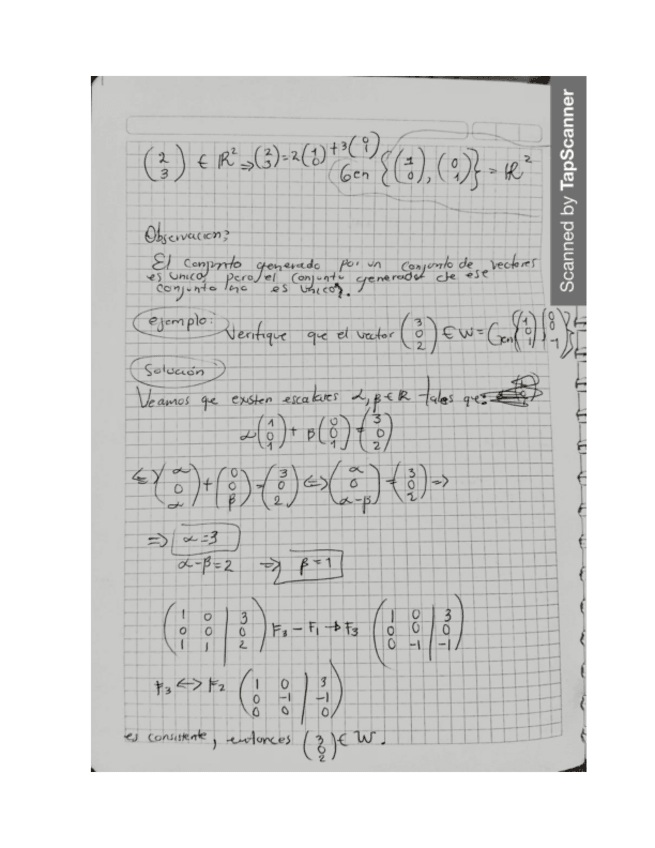 (2 3) ∈ ℝ² ⇒ (2 3) = 2(1 0) + 3(0 1)
Gen {(1 0), (0 1)} = ℝ²
Observacion:
El conjunto generado por un conjunto de vectores
es unico, pero el conjunto generador de ese
conjunto no es unico.
ejemplo:
Verifique que el vector (3 0 2) ∈ W = Gen{(1 0 1) (0 0 -1)}
Solución
Veamos que existen escalares α, β ∈ ℝ tales que:
α(1 0 1) + β(0 0 1) = (3 0 2)
⇔ (α 0 α) + (0 0 β) = (3 0 2) ⇔ (α 0 α-β) = (3 0 2) ⇒
⇒ α = 3
α-β = 2 ⇒ β = 1
(1 0 | 3
0 0 | 0
1 1 | 2) F₃ - F₁ → F₃ (1 0 | 3
0 0 | 0
0 -1 | -1)
F₃ ↔ F₂ (1 0 | 3
0 -1 | -1
0 0 | 0)
es consistente, entonces (3 0 2) ∈ W.
Scanned by TapScanner